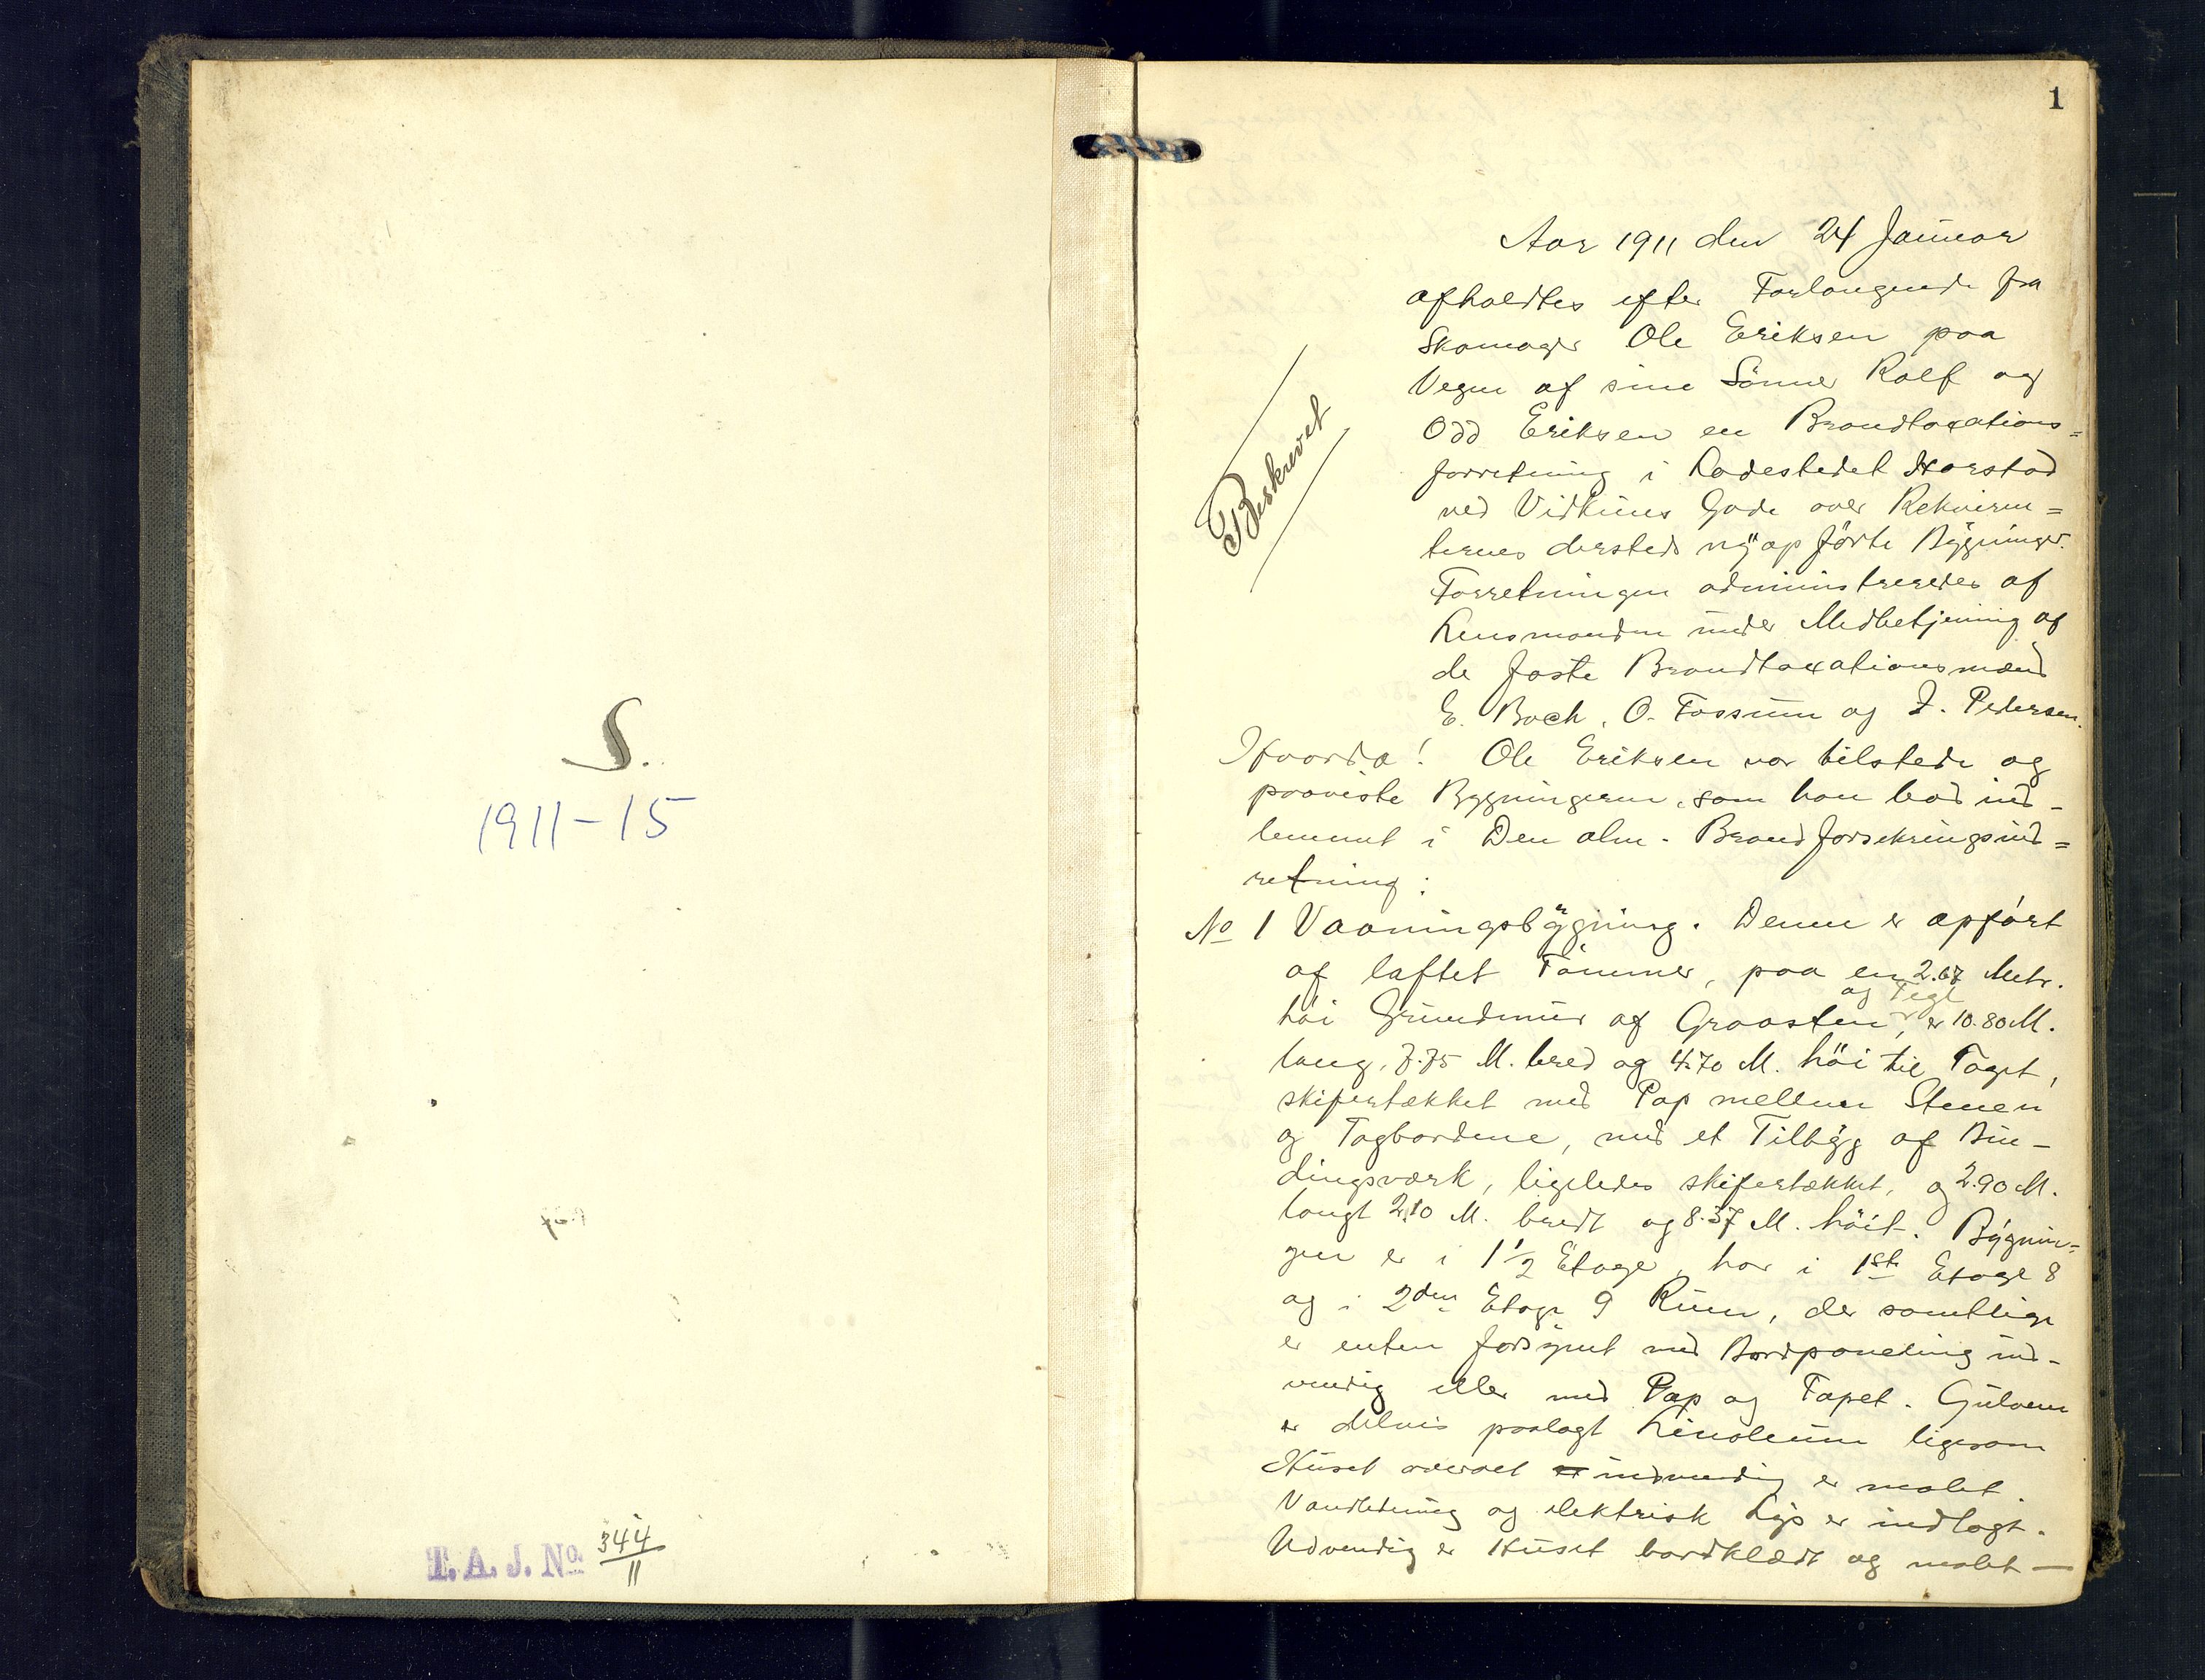 S.
1911-15
T. A. J. No. 344/11
1
Aar 1911 den 24 Januar
afholdtes efter Forlangende fra
Skomager Ole Eriksen paa
Vegne af sine Sönner Rolf og
Odd Eriksen en Brandtaxations=
forretning i Ladestedet Harstad
ved Vidkuns Gade over Rekviren=
ternes dersteds nyopförte Bygninger.
Forretningen administreredes af
Lensmanden under Medbetjening af
de faste Brandtaxationsmænd
E. Boch, O. Fossum og J. Pedersen.
Beskrevet
Hvorda! Ole Eriksen var tilstede og
paaviste Bygningerne, som han bad ind-
lemmet i Den alm. Brandforsikringsind=
retning:
No 1 Vaaningsbygning. Denne er opfört
af laftet Tömmer, paa en 2.67 Metr.
og Tegl
höi Grundmur af Graasten, er 10.80 M.
lang, 7.75 M. bred og 4.70 M. höi til Taget,
skifertækket med Pap mellem Stenen
og Tagbordene, med et Tilbyg af Bin-
dingsværk, ligeledes skifertækket, og 2.90 M.
langt 2.10 M. bredt og 8.37 M. höit. Bygnin=
gen er i 1½ Etage, har i 1ste Etage 8
og i 2den Etage 9 Rum, der samtlige
er enten forsynet med Bordpaneling ind-
vendig eller med Pap og Tapet. Gulvene
er delvis paalagt Linoleum ligesom
Huset overalt er indvendig er malet.
Vandledning og elektrisk Lys er indlagt.
Udvendig er Huset bordklædt og malet —